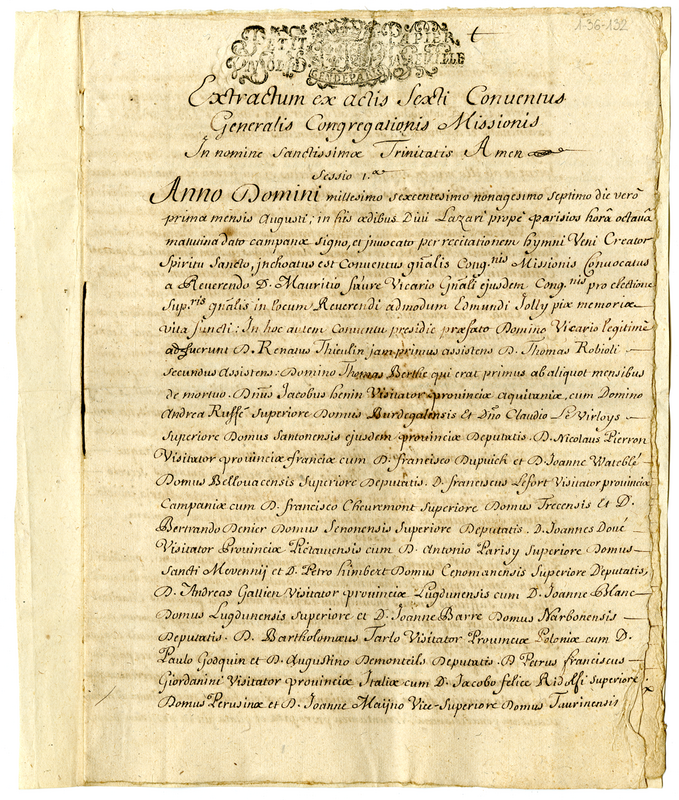 1-36-132
PETIT PAPIER
Extractum ex actis Sexti Conventus
Generalis Congregationis Missionis
In nomine Sanctissimæ Trinitatis Amen
Sessio 1.a
Anno Domini millesimo sexcentesimo nonagesimo septimo die verò
prima mensis Augusti; in his ædibus Divi Lazari propè parisios horâ octavâ
matutina dato campanæ signo, et jnvocato per recitationem hymni Veni Creator
Spiritu Sancto, jnchoatus est Conventus gñalis Cong.nis Missionis Convocatus
a Reverendo D. Mauritio faure Vicario Gñali ejusdem Cong.nis pro electione
Sup.ris gñalis in locum Reverendi admodum Edmundi Jolly piæ memoriæ
vita functi: In hoc autem Conventu preside præfato Domino Vicario legitimè
adfuerunt D. Renatus Thieulin jam primus assistens D. Thomas Robioli
secundus Assistens: Domino Thomas Berthe qui erat primus ab aliquot mensibus
de mortuo. Dñus Jacobus henin Visitator provinciæ aquitaniæ, cum Domino
Andrea Ruffé Superiore Domus Burdegalensis Et Dño Claudio Le Virloys
Superiore Domus Santonensis ejusdem provinciæ Deputatis. D. Nicolaus Pierron
Visitator provinciæ franciæ cum D. francisco Dupuich et D. Joanne Wateblé
Domus Bellovacensis Superiore Deputatis. D. franciscus Lefort Visitator provinciæ
Campaniæ cum D. francisco Cheuremont Superiore Domus Trecensis Et D.
Bertrando Denier Domus Senonensis Superiore Deputatis. D. Joannes Doué
Visitator Provinciæ Pictaviensis cum D. Antonio Parisy Superiore Domus
Sancti Mevennij et D. Petro himbert Domus Cenomanensis Superiore Deputatis,
D. Andreas Gallien Visitator provinciæ Lugdunensis cum D. Joanne Blanc
Domus Lugdunensis Superiore et D. Joanne Barre Domus Narbonensis
Deputatis. D. Bartholomæus Tarlo Visitator Provinciæ Poloniæ cum D.
Paulo Godquin et D. Augustino Demonteils Deputatis. D Petrus franciscus
Giordanini Visitator provinciæ Italiæ cum D. Jacobo felice Ridolfi Superiore
Domus Perusinæ et D. Joanne Maijno Vice-Superiore Domus Taurinensis